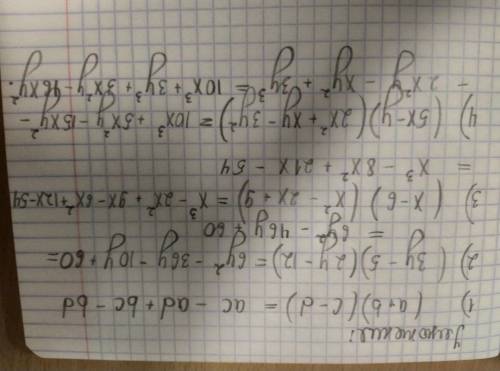 Умножение:
1) (a+b)(c-d) = ac - ad + bc - bd
2) (3y-5)(2y-12) = 6y² - 36y - 10y + 60 =
= 6y² - 46y + 60
3) (x-6)(x²-2x+9) = x³ - 2x² + 9x - 6x² + 12x - 54
= x³ - 8x² + 21x - 54
4) (5x-y)(2x²+xy-3y²) = 10x³ + 5x²y - 15xy² -
- 2x²y - xy² + 3y³ = 10x³ + 3y³ + 3x²y - 16xy².